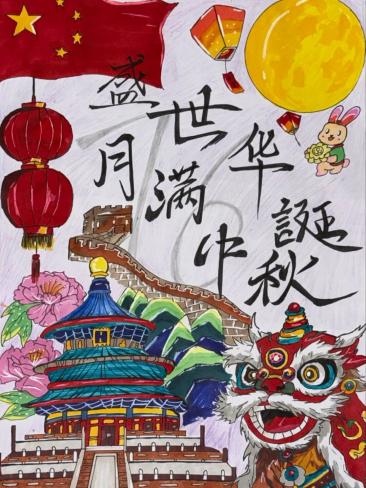 盛世华誕
月满中秋
76